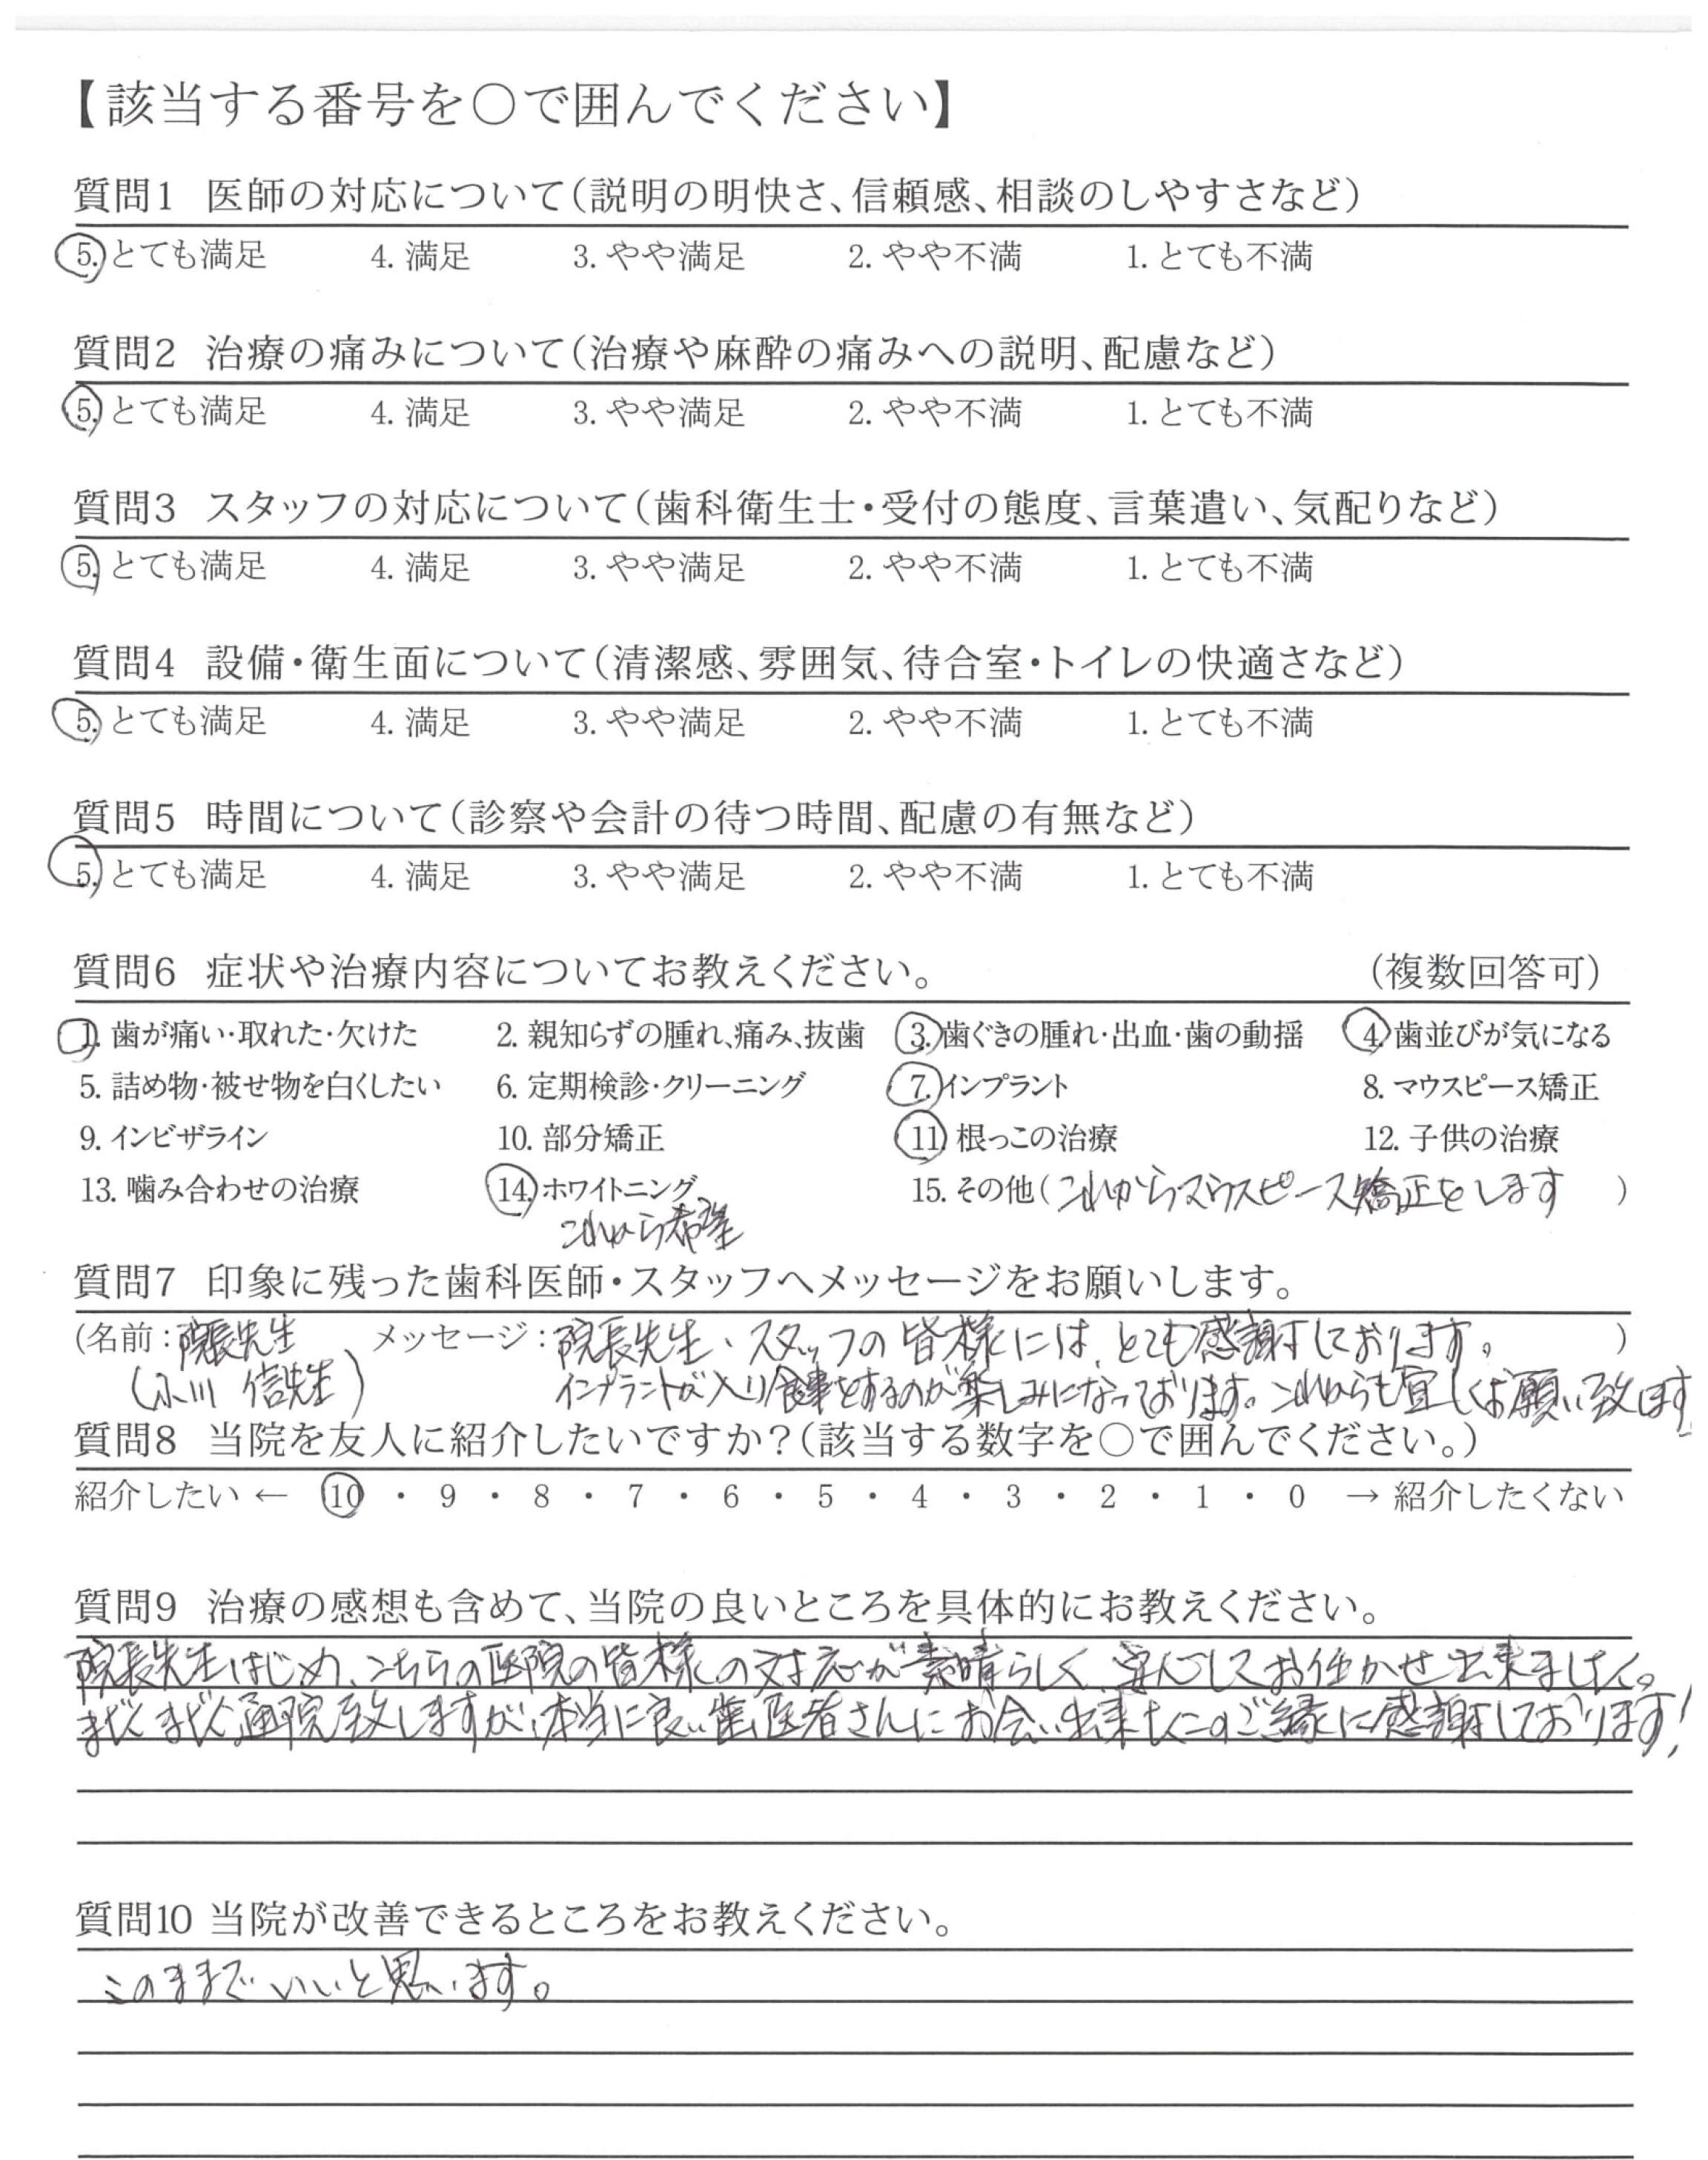 【該当する番号を○で囲んでください】
質問1 医師の対応について(説明の明快さ、信頼感、相談のしやすさなど)
5. とても満足 4. 満足 3. やや満足 2. やや不満 1. とても不満
質問2 治療の痛みについて(治療や麻酔の痛みへの説明、配慮など)
5. とても満足 4. 満足 3. やや満足 2. やや不満 1. とても不満
質問3 スタッフの対応について(歯科衛生士・受付の態度、言葉遣い、気配りなど)
5. とても満足 4. 満足 3. やや満足 2. やや不満 1. とても不満
質問4 設備・衛生面について(清潔感、雰囲気、待合室・トイレの快適さなど)
5. とても満足 4. 満足 3. やや満足 2. やや不満 1. とても不満
質問5 時間について(診察や会計の待つ時間、配慮の有無など)
5. とても満足 4. 満足 3. やや満足 2. やや不満 1. とても不満
質問6 症状や治療内容についてお教えください。 (複数回答可)
1. 歯が痛い・取れた・欠けた 2. 親知らずの腫れ、痛み、抜歯 3. 歯ぐきの腫れ・出血・歯の動揺 4. 歯並びが気になる
5. 詰め物・被せ物を白くしたい 6. 定期検診・クリーニング 7. インプラント 8. マウスピース矯正
9. インビザライン 10. 部分矯正 11. 根っこの治療 12. 子供の治療
13. 噛み合わせの治療 14. ホワイトニング 15. その他(これからマウスピース矯正をします )
これから希望
質問7 印象に残った歯科医師・スタッフへメッセージをお願いします。
(名前:院長先生 メッセージ:院長先生、スタッフの皆様には、とても感謝しております。 )
(小川 信先生) インプラントが入り食事をするのが楽しみになっております。これからも宜しくお願い致します
質問8 当院を友人に紹介したいですか?(該当する数字を○で囲んでください。)
紹介したい ← 10 ・ 9 ・ 8 ・ 7 ・ 6 ・ 5 ・ 4 ・ 3 ・ 2 ・ 1 ・ 0 → 紹介したくない
質問9 治療の感想も含めて、当院の良いところを具体的にお教えください。
院長先生はじめ、こちらの医院の皆様の対応が素晴らしく、安心してお任かせ出来ました。
まだまだ通院致しますが、本当に良い歯医者さんにお会い出来たこのご縁に感謝しております!
質問10 当院が改善できるところをお教えください。
このままでいいと思います。